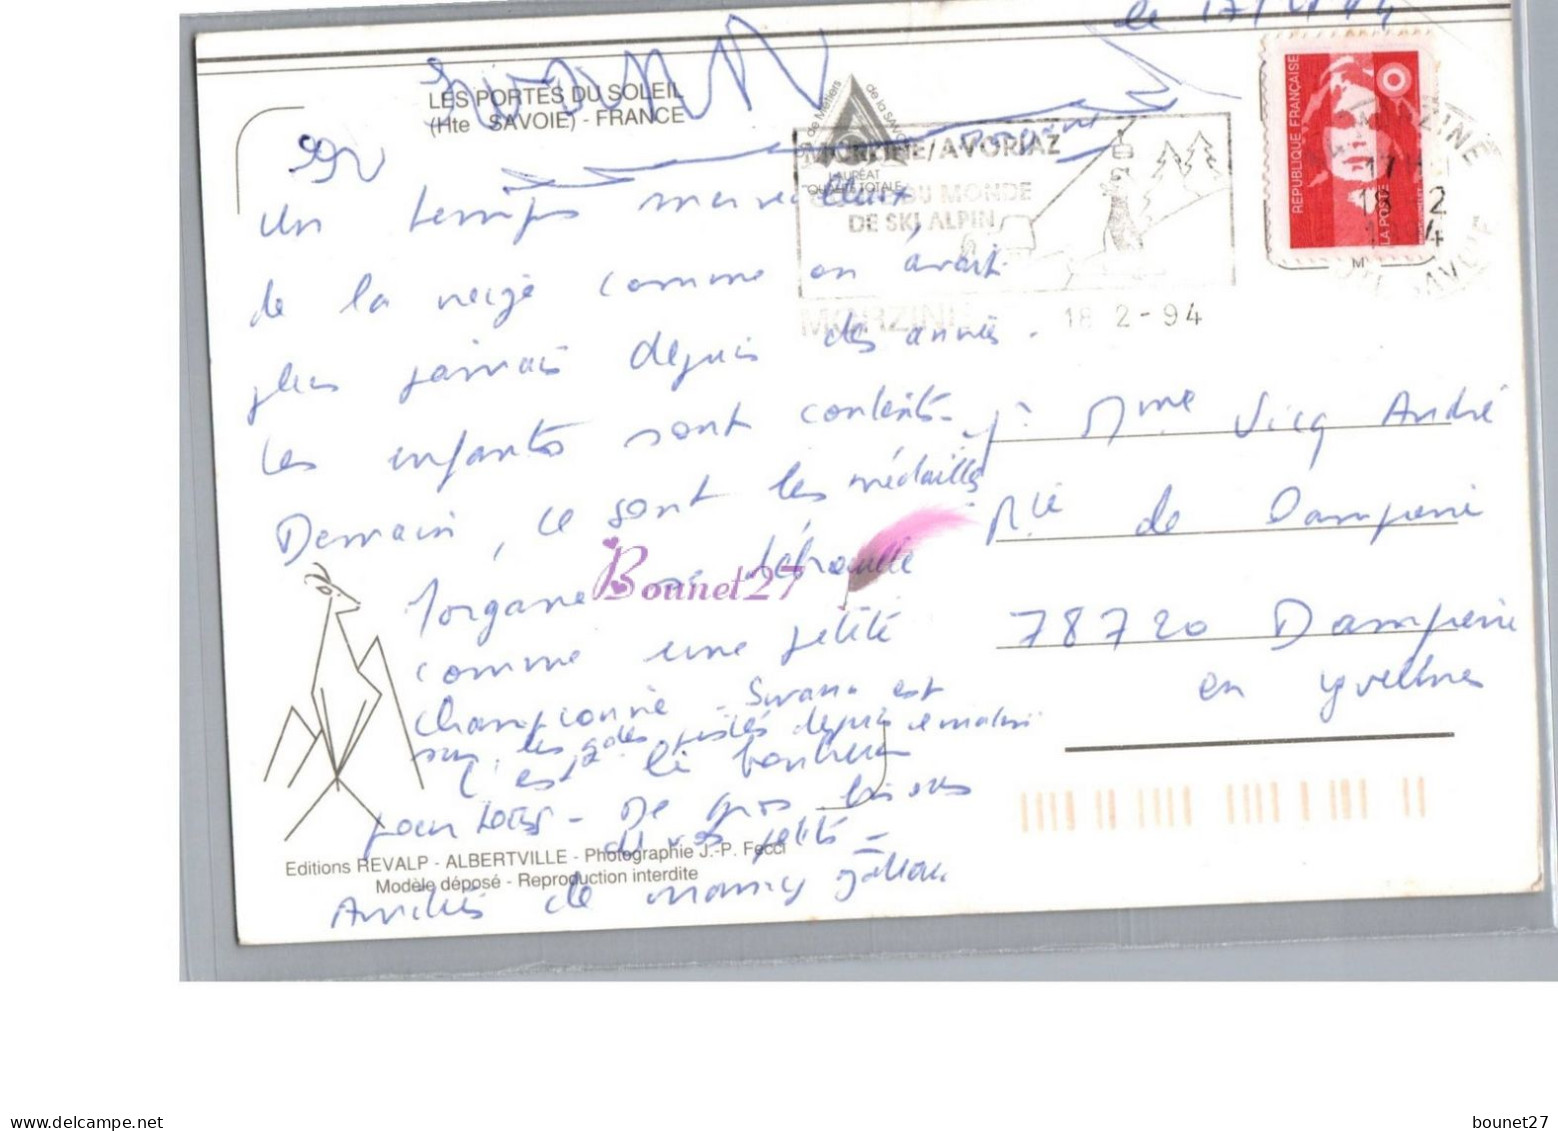 le 17/2/94
LES PORTES DU SOLEIL
(Hte SAVOIE) - FRANCE
de Métiers
de la SAVOIE
LAURÉAT
"QUALITÉ TOTALE"
MORZINE/AVORIAZ
COUPE DU MONDE
DE SKI ALPIN
MORZINE 18 2 - 94
RÉPUBLIQUE FRANÇAISE
LA POSTE
MORZINE
17 H
18 2
Un temps merveilleux
de la neige comme on avait
plus jamais depuis des années.
Les enfants sont contents.
Demain, ce sont les médailles
Morgane se débrouille
comme une petite
championne - Swann est
sur les pistes depuis ce matin
C'est le bonheur
pour tous - De gros bisous
de vos petits -
Amitiés de
Mr Mme Vicq André
de Dampierre
78720 Dampierre
en Yvelines
Editions REVALP - ALBERTVILLE - Photographie J.-P. Fecci
Modèle déposé - Reproduction interdite
Bounet27
www.delcampe.net
bounet27